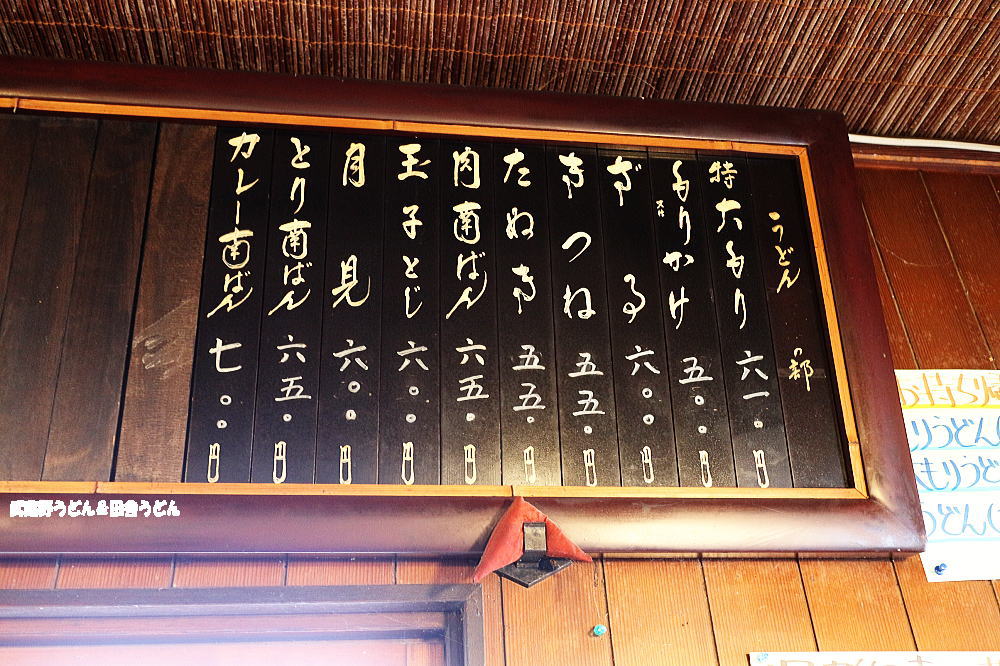 うどんの部
特大もり 六一〇円
もりかけ 五〇〇円
ざる 六〇〇円
きつね 五五〇円
たぬき 五五〇円
肉南ばん 六五〇円
玉子とじ 六〇〇円
月見 六〇〇円
とり南ばん 六五〇円
カレー南ばん 七〇〇円
りうどん(
もりうど
うどん(
武蔵野うどん＆田舎うどん